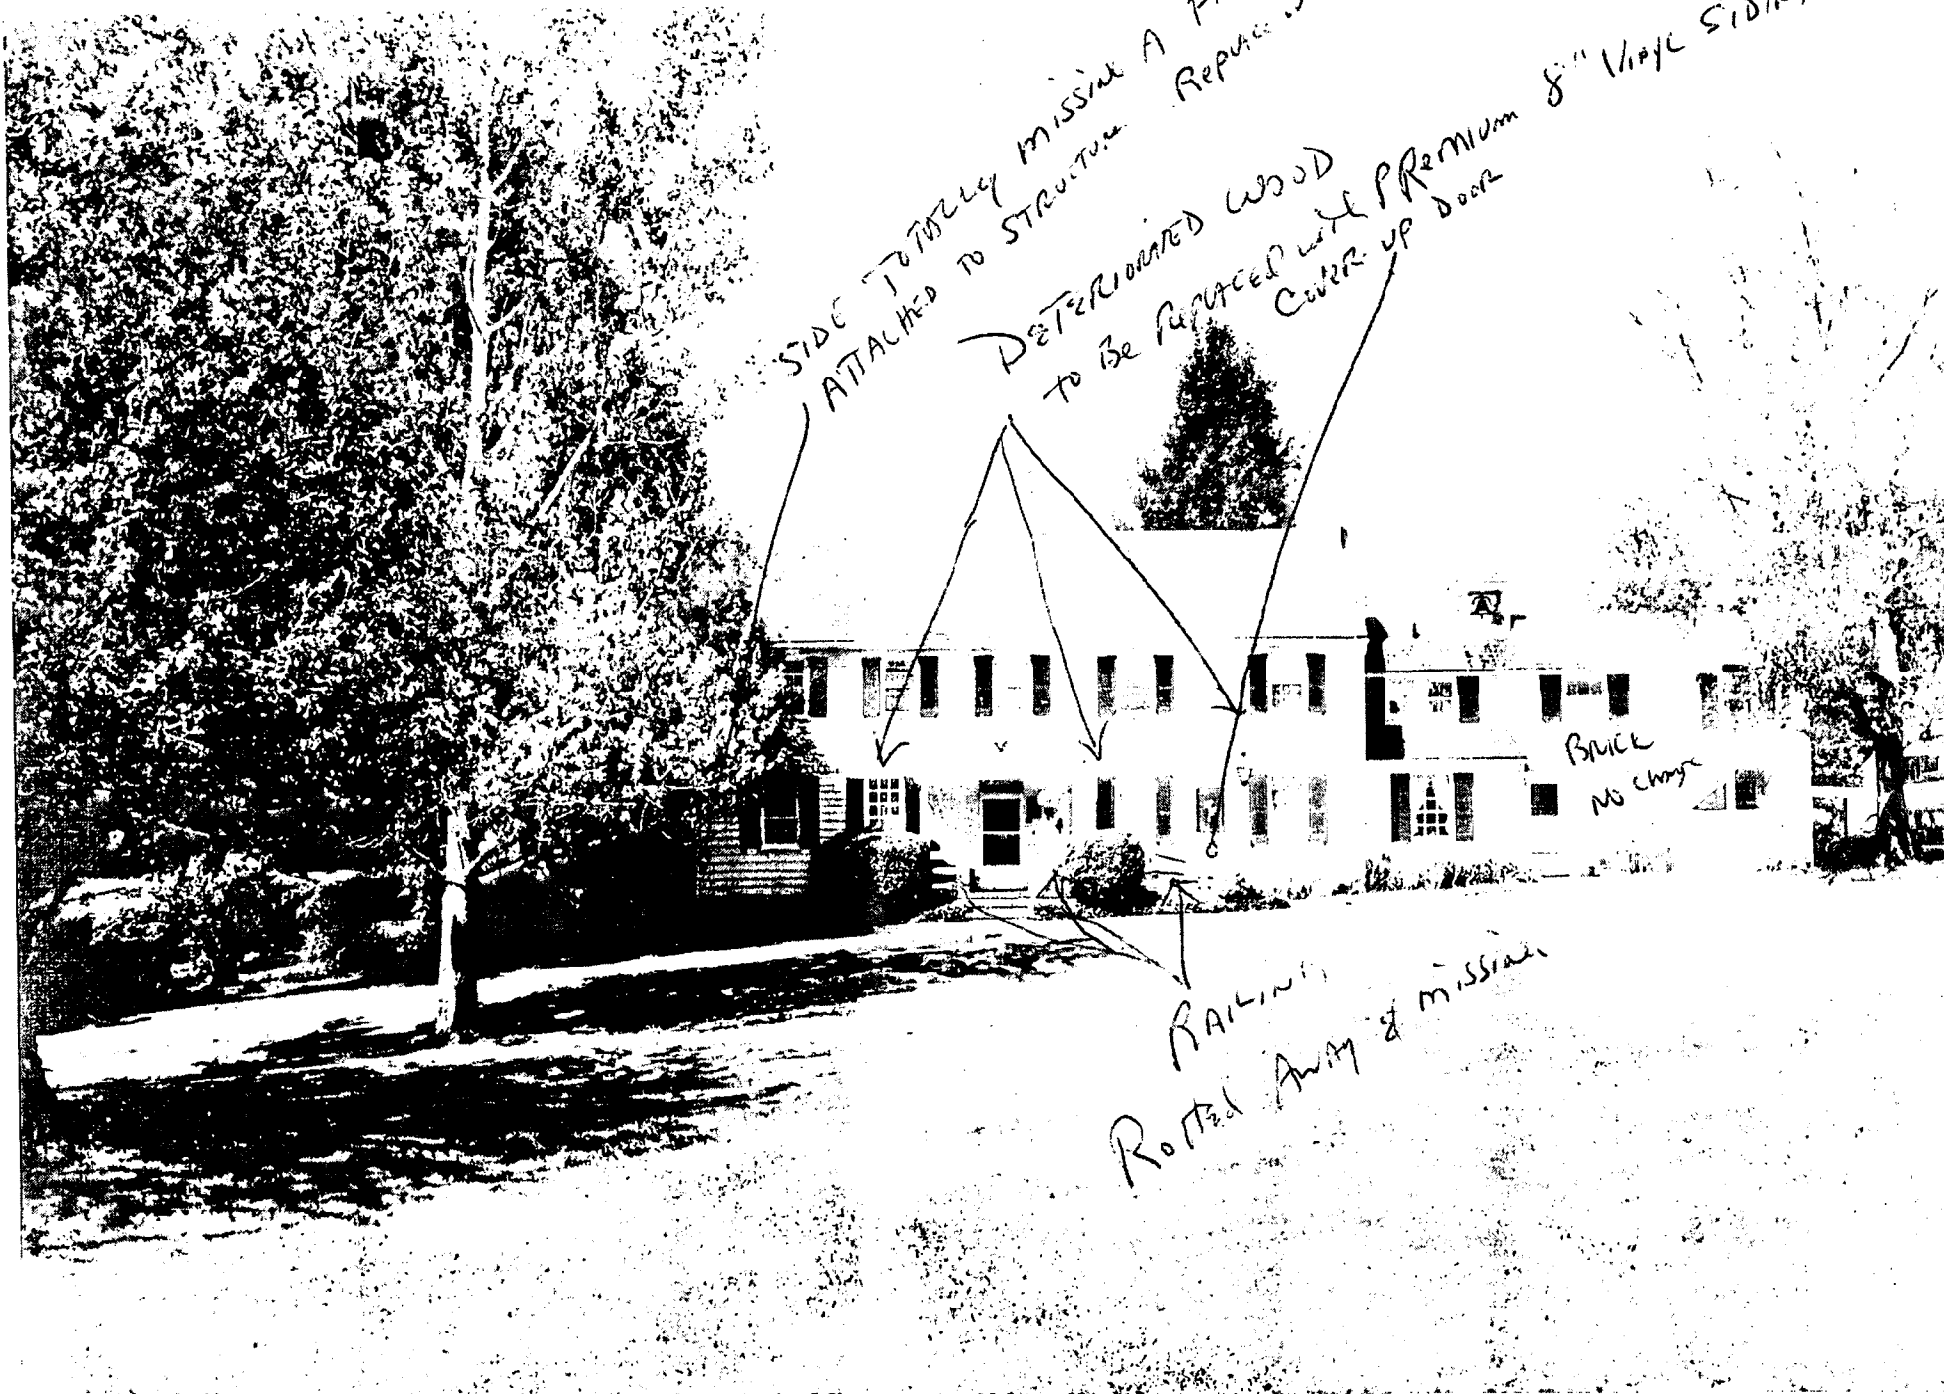 SIDE TOTALLY missing A
ATTACHED TO STRUCTURE Replace
DETERIORATED WOOD
to Be Replaced with PRemium 8" Vinyl SIDING
Cover up Door
BRICK
No Change
RAILING
Rotted Away & missing